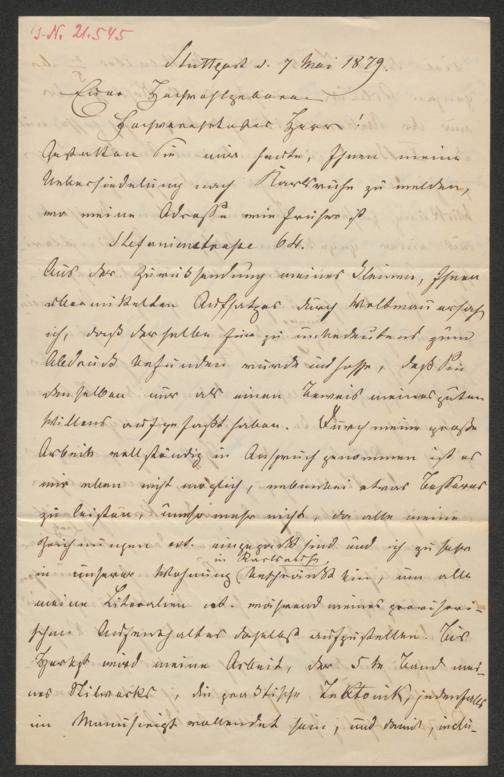 I.N. 21.545
Stuttgart d. 7 Mai 1879.
Euer Hochwohlgeboren
Hochverehrtester Herr!
Gestatten Sie mir heute, Ihnen meine
Uebersiedelung nach Karlsruhe zu melden,
wo meine Adresse wie früher ist
Stefanienstrasse 64.
Aus der Zurücksendung meines kleinen, Ihnen
übermittelten Aufsatzes durch Weltmann ersah
ich, daß derselbe für zu unbedeutend zum
Abdruck befunden wurde und hoffe, daß Sie
denselben nur als einen Beweis meines guten
Willens aufgefaßt haben. Durch meine große
Arbeit vollständig in Anspruch genommen ist es
mir eben nicht möglich, nebenbei etwas Besseres
zu leisten, umso mehr nicht, da alle meine
Zeichnungen ect. eingepackt sind und ich zu sehr
in unserer Wohnung in Karlsruhe beschränkt bin, um alle
meine Literalien ect. während meines provisori-
schen Aufenthaltes daselbst aufzustellen. Bis
Herbst wird meine Arbeit, der 5te Band mei-
nes Stilwerks, die praktische Tektonik, jedenfalls
im Manuscript vollendet sein, und damit,